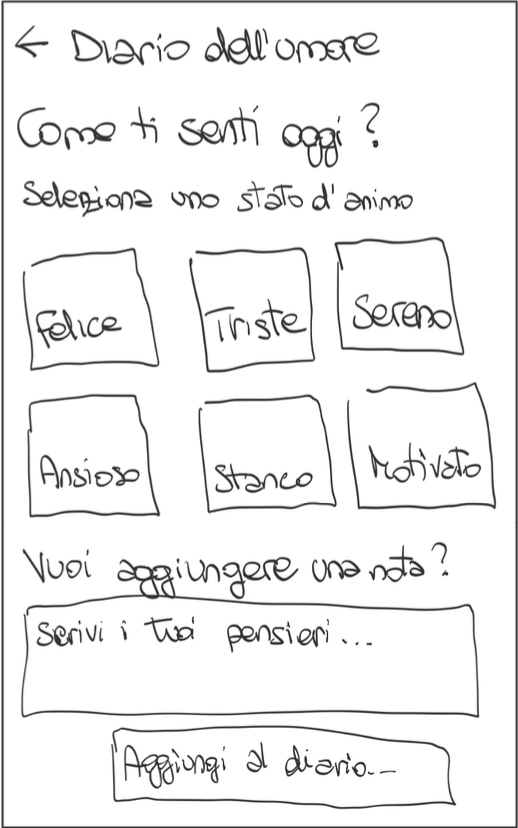 ← Diario dell'umore
Come ti senti oggi?
Seleziona uno stato d'animo
Felice
Triste
Sereno
Ansioso
Stanco
Motivato
Vuoi aggiungere una nota?
Scrivi i tuoi pensieri...
Aggiungi al diario...